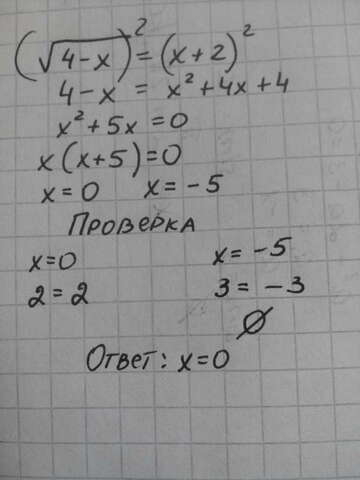 (√4-x)² = (x+2)²
4-x = x²+4x+4
x²+5x=0
x(x+5)=0
x=0 x=-5
Проверка
x=0 x=-5
2=2 3=-3
∅
Ответ: x=0